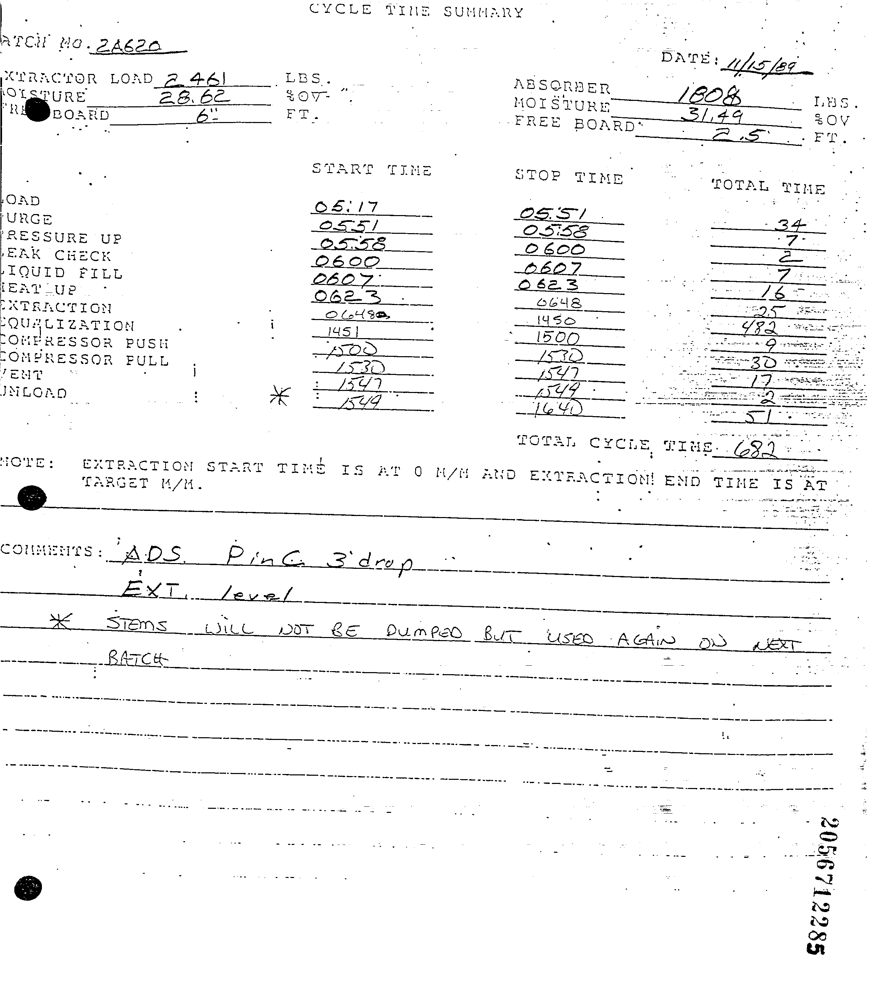 CYCLE TIME SUMMARY
ATCH NO. 2A620
DATE: 11/15/89
XTRACTOR LOAD 2461 LBS. ABSORBER 1808 LBS.
OISTURE 28.62 %OV MOISTURE 31.49 %OV
FREE BOARD 6" FT. FREE BOARD 2.5 FT.
START TIME STOP TIME TOTAL TIME
OAD 05:17 05:51 34
URGE 0551 05:58 7
RESSURE UP 05:58 0600 2
EAK CHECK 0600 0607 7
IQUID FILL 0607 0623 16
EAT UP 0623 0648 25
XTRACTION 0648 1450 482
QUALIZATION 1451 1500 9
COMPRESSOR PUSH 1500 1530 30
COMPRESSOR PULL 1530 1547 17
VENT 1547 1549 2
UNLOAD * 1549 1640 51
TOTAL CYCLE TIME 682
NOTE: EXTRACTION START TIME IS AT 0 M/M AND EXTRACTION END TIME IS AT
TARGET M/M.
COMMENTS: ADS. PinC 3' drop
EXT. level
* STEMS WILL NOT BE DUMPED BUT USED AGAIN ON NEXT
BATCH
2056712285